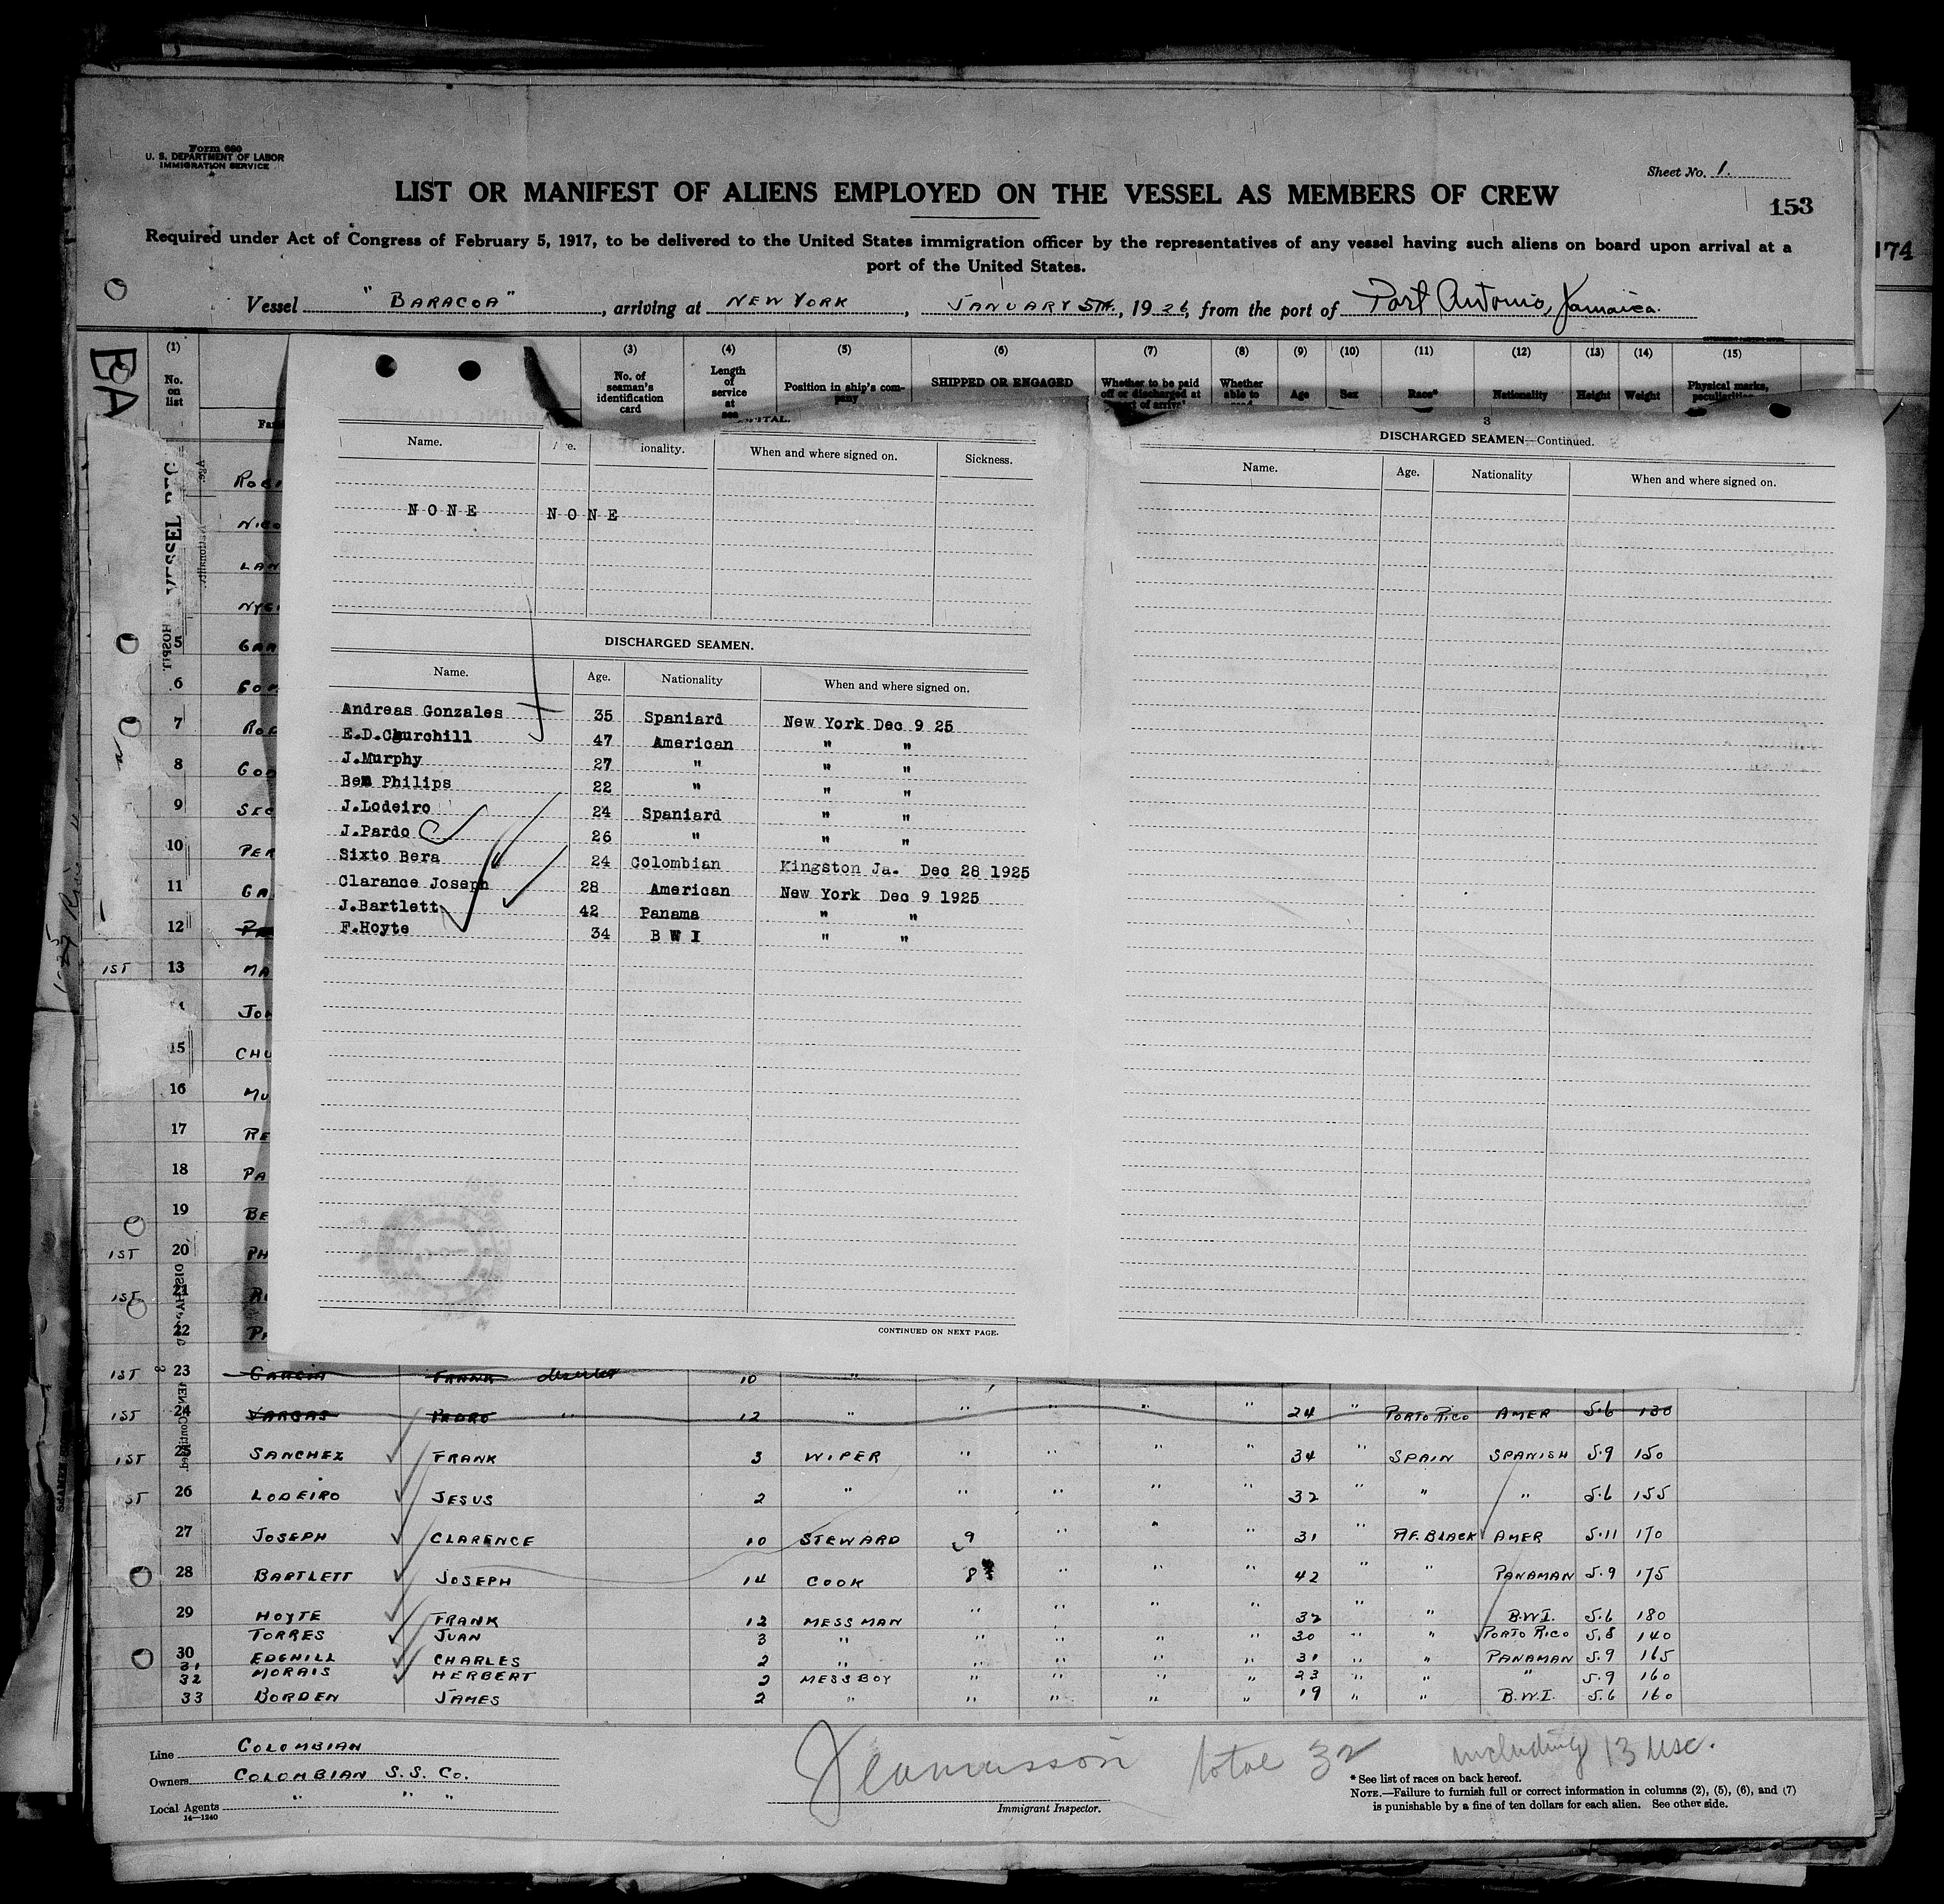 Form 680
U. S. DEPARTMENT OF LABOR
IMMIGRATION SERVICE
Sheet No. 1.
LIST OR MANIFEST OF ALIENS EMPLOYED ON THE VESSEL AS MEMBERS OF CREW
153
174
Required under Act of Congress of February 5, 1917, to be delivered to the United States immigration officer by the representatives of any vessel having such aliens on board upon arrival at a
port of the United States.
Vessel "BARACOA", arriving at NEW YORK, JANUARY 5TH, 1926, from the port of Port Antonio, Jamaica.
(1) (3) (4) (5) (6) (7) (8) (9) (10) (11) (12) (13) (14) (15)
No. on list
No. of seaman's identification card
Length of service at sea
Position in ship's company
SHIPPED OR ENGAGED
Whether to be paid off or discharged at
Whether able to
Age
Sex
Race*
Nationality
Height
Weight
Physical marks,
Name. When and where signed on. Sickness.
NONE NONE
DISCHARGED SEAMEN.
Name. Age. Nationality When and where signed on.
Andreas Gonzales 35 Spaniard New York Dec 9 25
E.D.Churchill 47 American " "
J.Murphy 27 " " "
Ben Philips 22 " " "
J.Lodeiro 24 Spaniard " "
J.Pardo 26 " " "
Sixto Bera 24 Colombian Kingston Ja. Dec 28 1925
Clarance Joseph 28 American New York Dec 9 1925
J.Bartlett 42 Panama " "
F.Hoyte 34 B W I " "
CONTINUED ON NEXT PAGE.
3
DISCHARGED SEAMEN—Continued.
Name. Age. Nationality When and where signed on.
5
6
7
8
9
10
11
12
1ST 13
15
16
17
18
19
1ST 20
1ST 21
22
1ST 23 GARCIA FRANK deserter 10 "
1ST 24 VARGAS PEDRO " 12 " " " " " 24 " PORTO RICO AMER 5.6 130
1ST 25 SANCHEZ FRANK 3 WIPER " " " " 34 " SPAIN SPANISH 5.9 150
1ST 26 LODEIRO JESUS 2 " " " " " 32 " " " 5.6 155
27 JOSEPH CLARENCE 10 STEWARD 9 " " " 31 " AF. BLACK AMER 5.11 170
28 BARTLETT JOSEPH 14 COOK 8 " " " 42 " " PANAMAN 5.9 175
29 HOYTE FRANK 12 MESSMAN " " " " 32 " " B.W.I. 5.6 180
30 TORRES JUAN 3 " " " " " 30 " " PORTO RICO 5.8 140
31 EDGHILL CHARLES 2 " " " " " 31 " " PANAMAN 5.9 165
32 MORAIS HERBERT 2 MESSBOY " " " " 23 " " " 5.9 160
33 BORDEN JAMES 2 " " " " " 19 " " B.W.I. 5.6 160
Line COLOMBIAN
Owners COLOMBIAN S.S. Co.
Local Agents " " "
14—1240
total 32 including 13 USC.
Immigrant Inspector.
* See list of races on back hereof.
NOTE.—Failure to furnish full or correct information in columns (2), (5), (6), and (7)
is punishable by a fine of ten dollars for each alien. See other side.